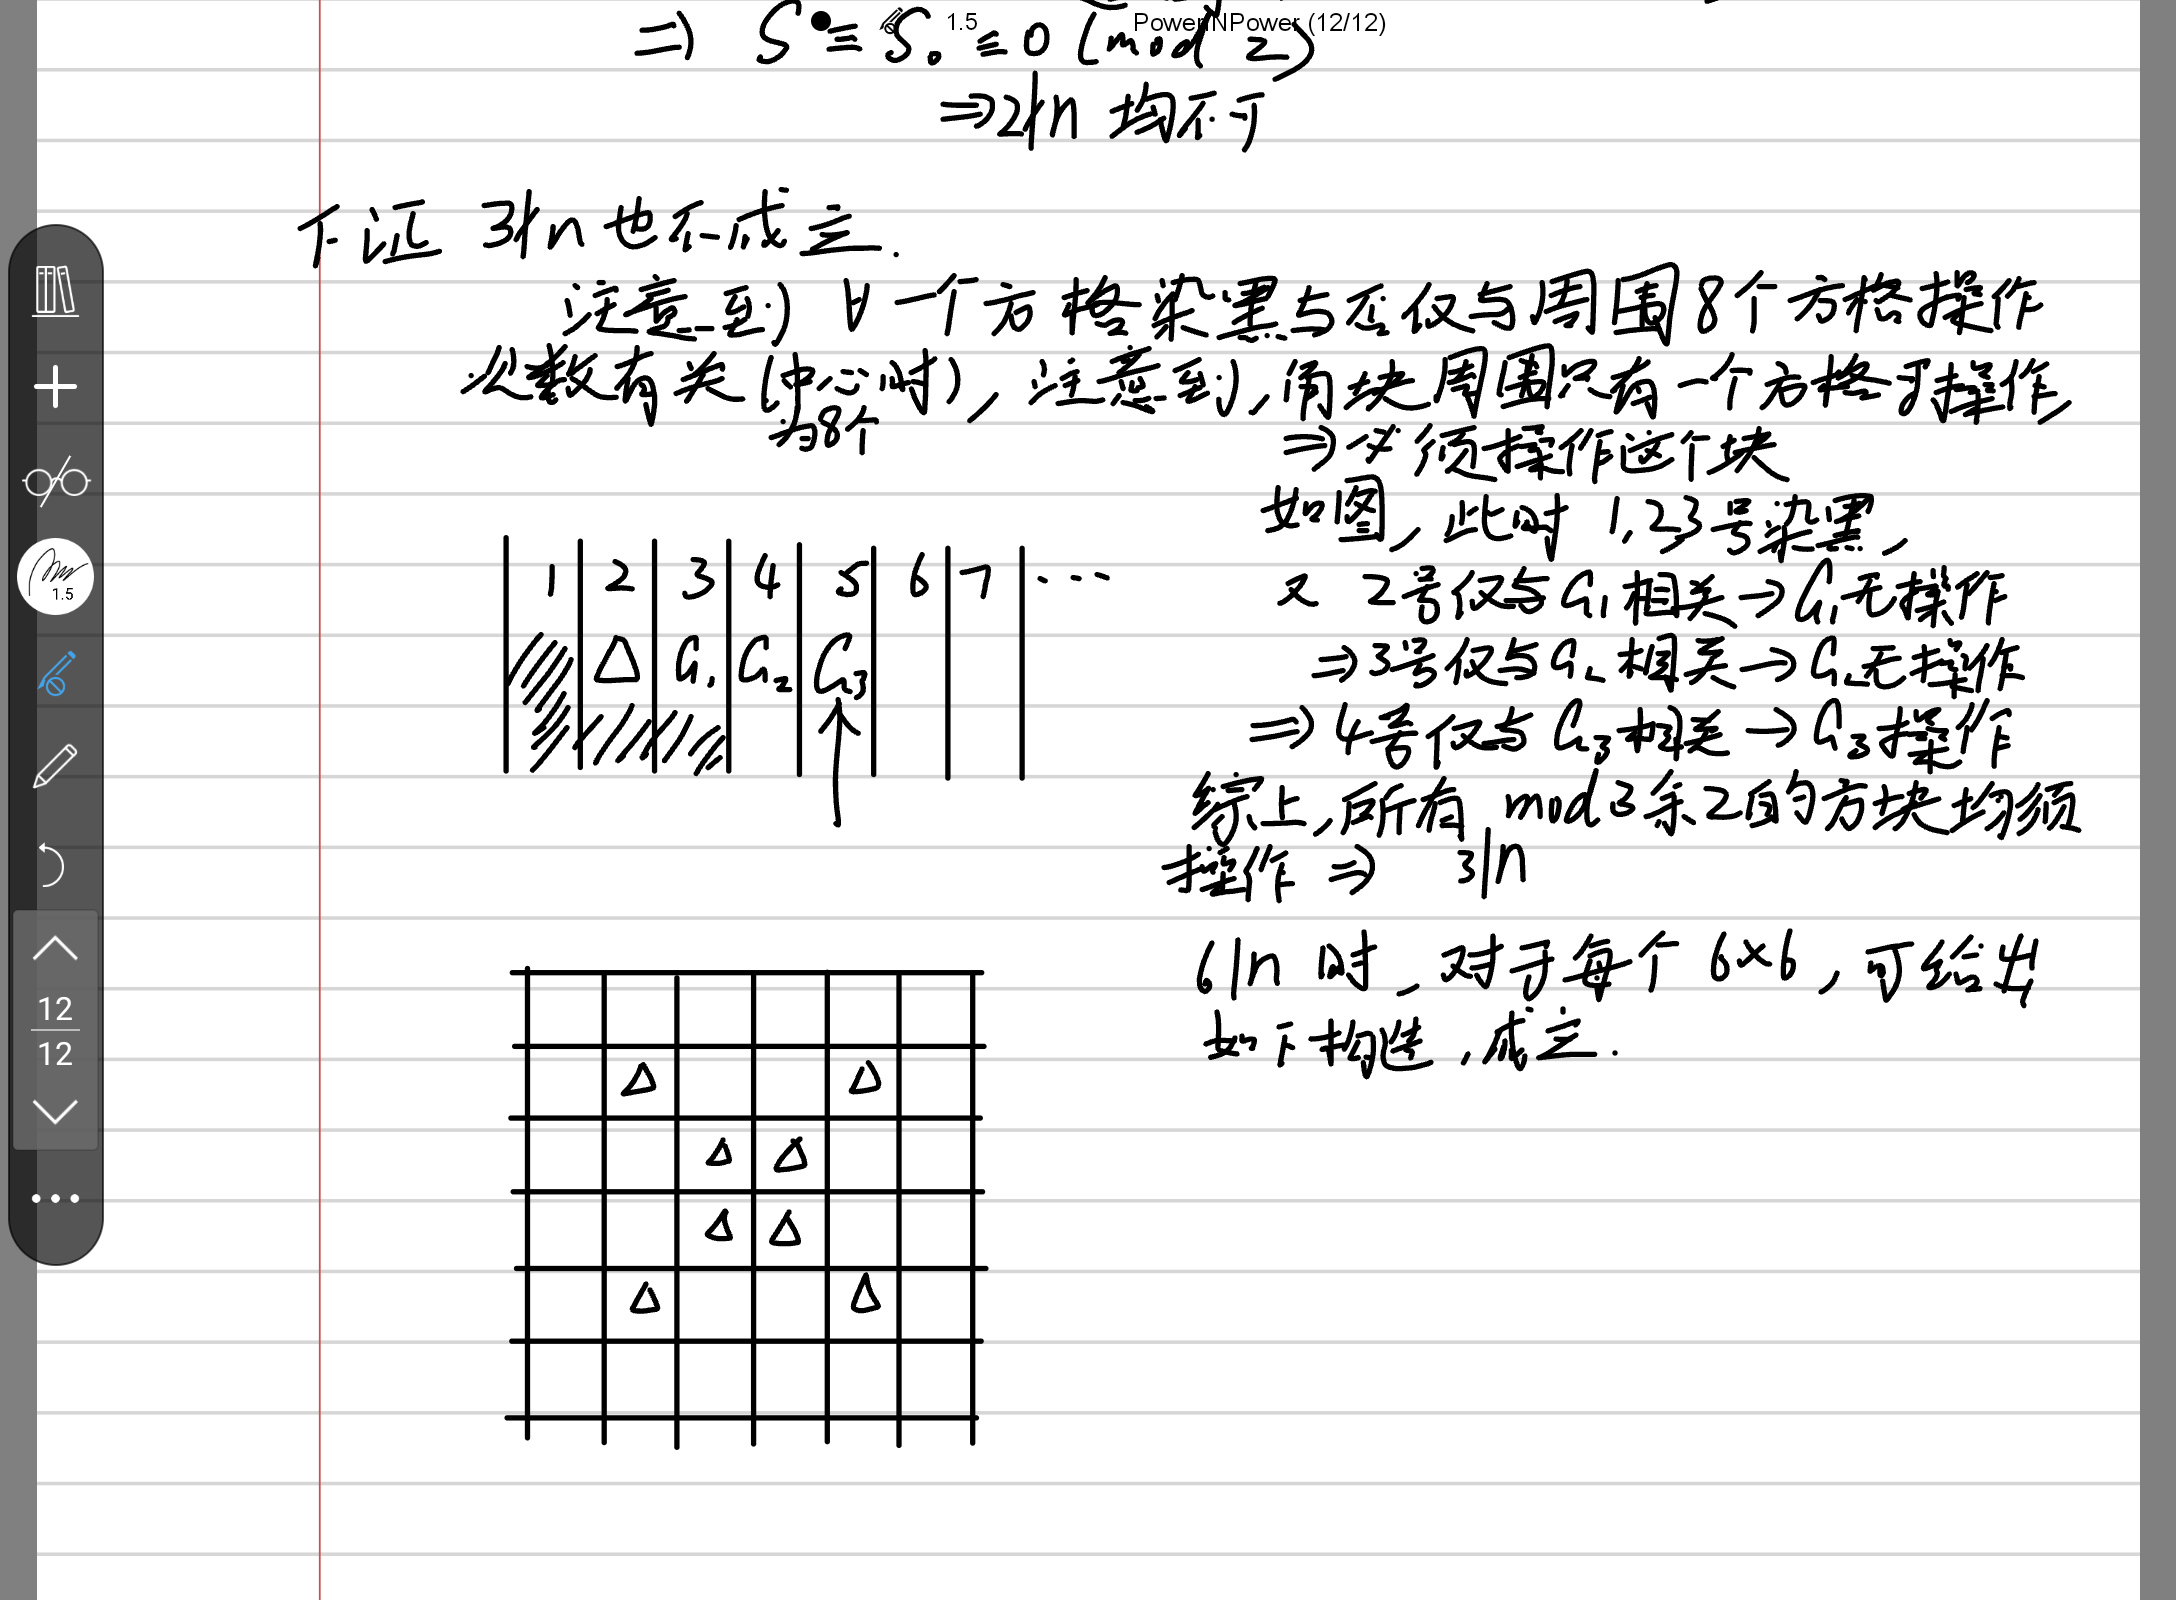 1.5 PowerNPower (12/12)
⇒ S ≡ S₀ ≡ 0 (mod 2)
⇒ 2∤n 均不可
下证 3∤n 也不成立.
注意到 ∀ 一个方格染黑与否仅与周围8个方格操作
次数有关(中心时), 注意到, 角块周围只有一个方格可操作,
为8个
⇒必须操作这个块
如图, 此时 1,2,3号染黑,
又 2号仅与G₁相关→G₁无操作
⇒3号仅与G₂相关→G₂无操作
⇒4号仅与G₃相关→G₃操作
综上, 所有 mod 3余2的方块均须
操作 ⇒ 3|n
1 2 3 4 5 6 7 ...
△ G₁ G₂ G₃
6|n 时, 对于每个 6×6, 可给出
如下构造, 成立.
△ △
△ △
△ △
△ △
1.5
12
12